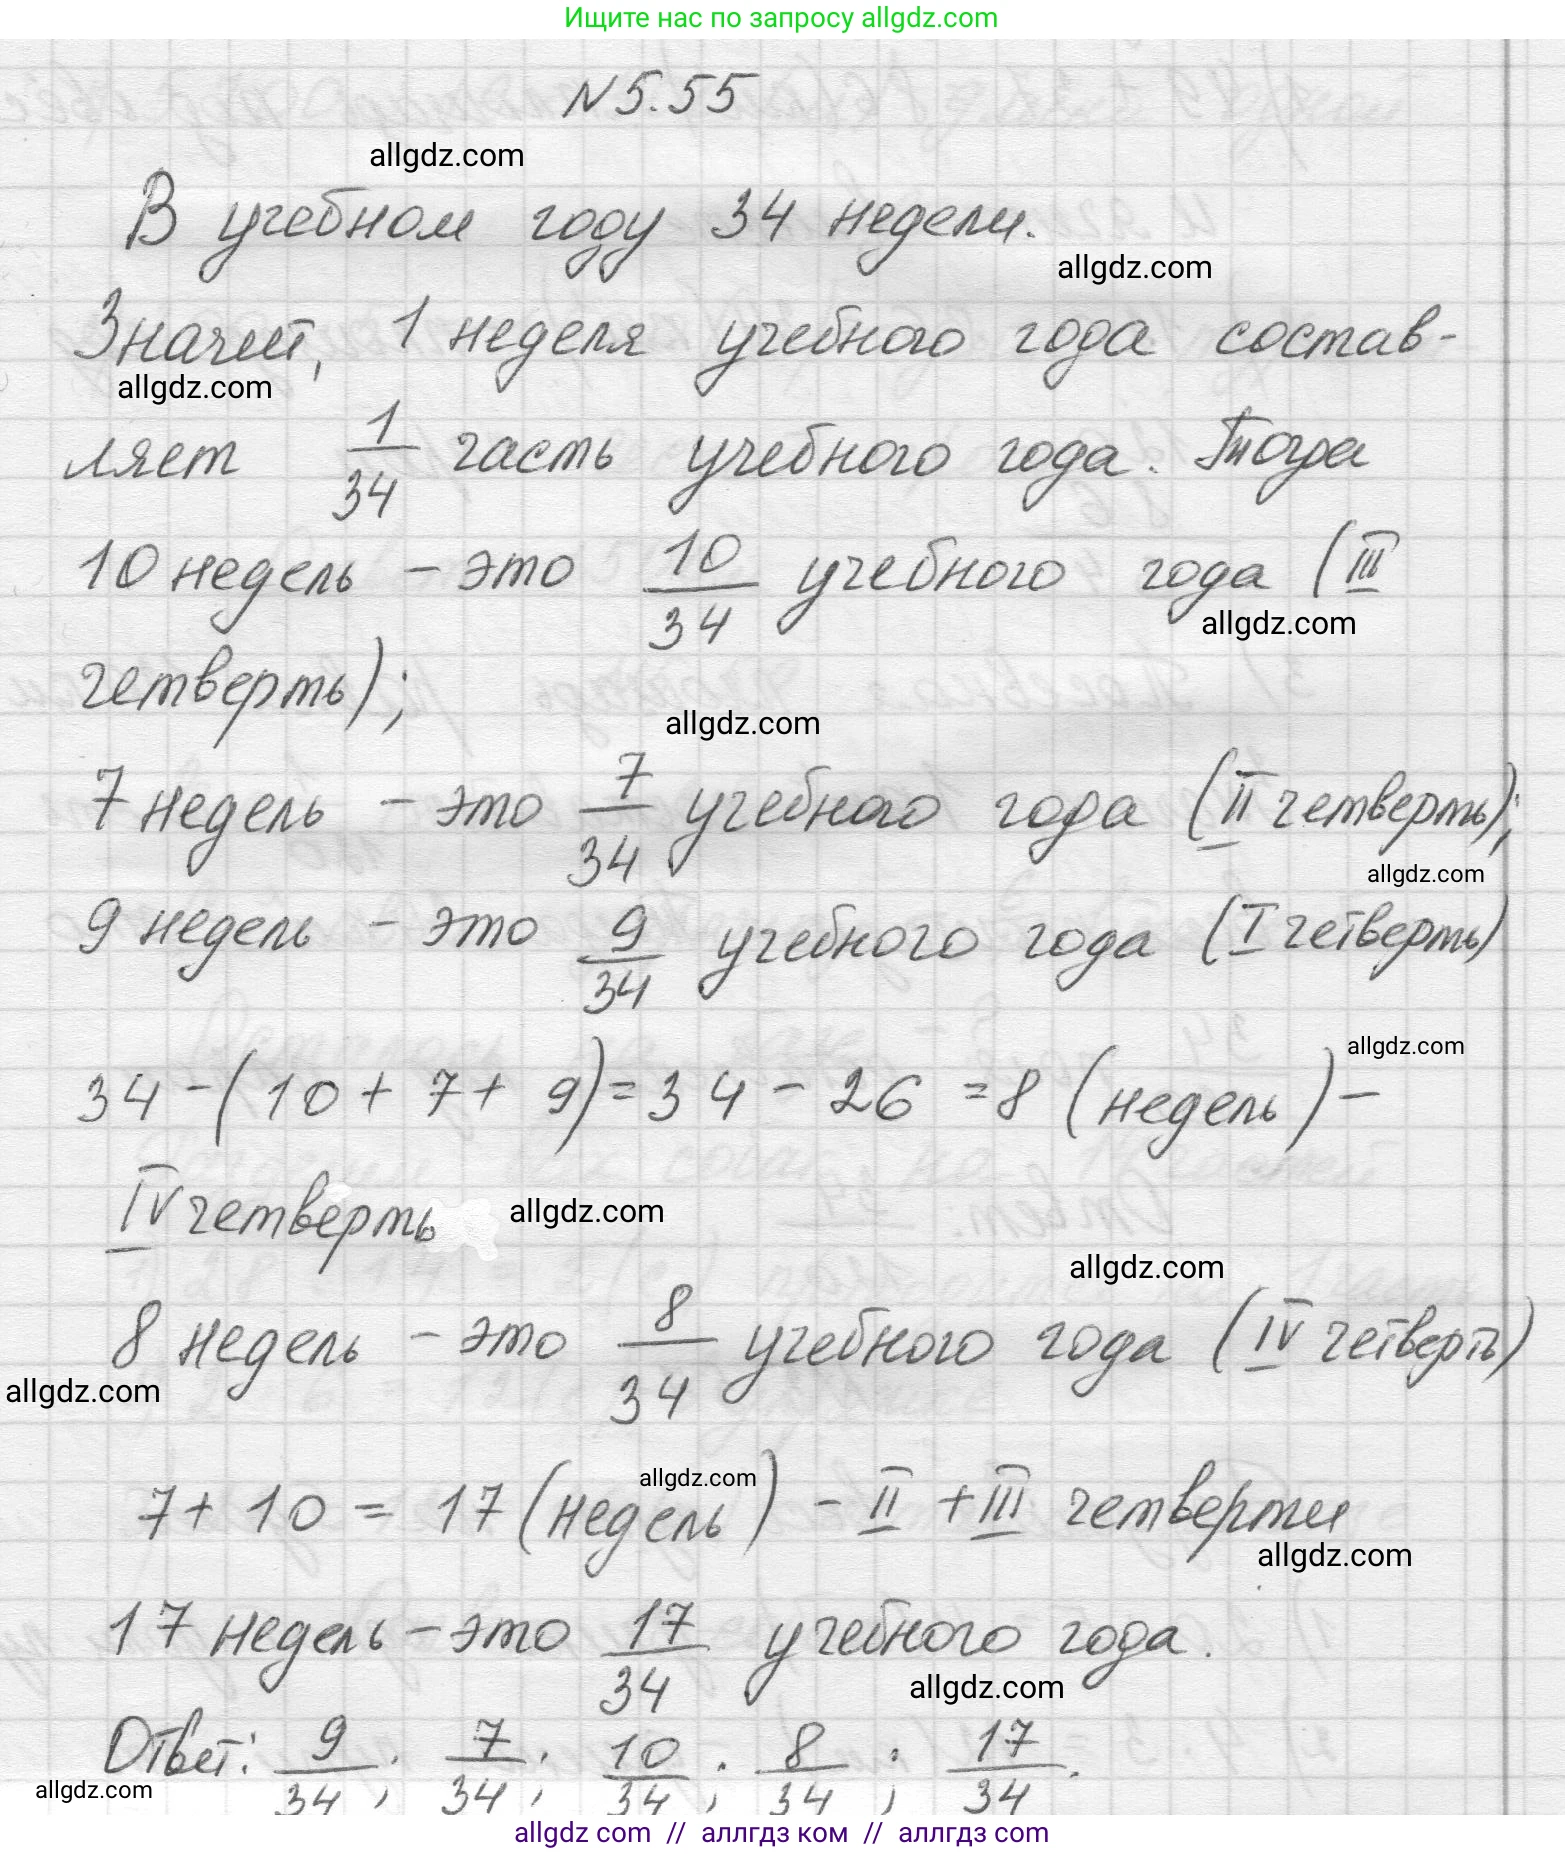 Ищите нас по запросу allgdz.com
N 5.55
allgdz.com
В учебном году 34 недели.
allgdz.com
Значит, 1 неделя учебного года состав-
allgdz.com
ляет 1/34 часть учебного года. Тогда
10 недель - это 10/34 учебного года (III
allgdz.com
четверть);
allgdz.com
7 недель - это 7/34 учебного года (II четверть);
allgdz.com
9 недель - это 9/34 учебного года (I четверть)
allgdz.com
34 - (10 + 7 + 9) = 34 - 26 = 8 (недель) -
IV четверть
allgdz.com
allgdz.com
8 недель - это 8/34 учебного года (IV четверть)
allgdz.com
allgdz.com
7 + 10 = 17 (недель) - II + III четверти
allgdz.com
17 недель - это 17/34 учебного года.
allgdz.com
Ответ: 9/34; 7/34; 10/34; 8/34; 17/34.
allgdz.com
allgdz com // аллгдз ком // аллгдз com